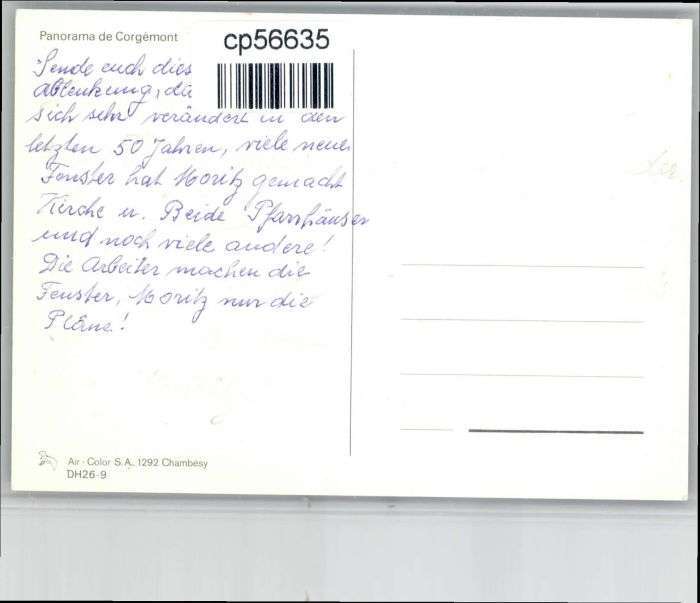 Panorama de Corgémont
cp56635
Sende euch dies
Ablenkung,
sich sehr verändert in den
letzten 50 Jahren, viele neue
Fenster hat Moritz gemacht
Kirche u. Beide Pfarrhäuser
und noch viele andere!
Die Arbeiter machen die
Fenster, Moritz nur die
Pläne!
Air-Color S.A. 1292 Chambesy
DH26-9